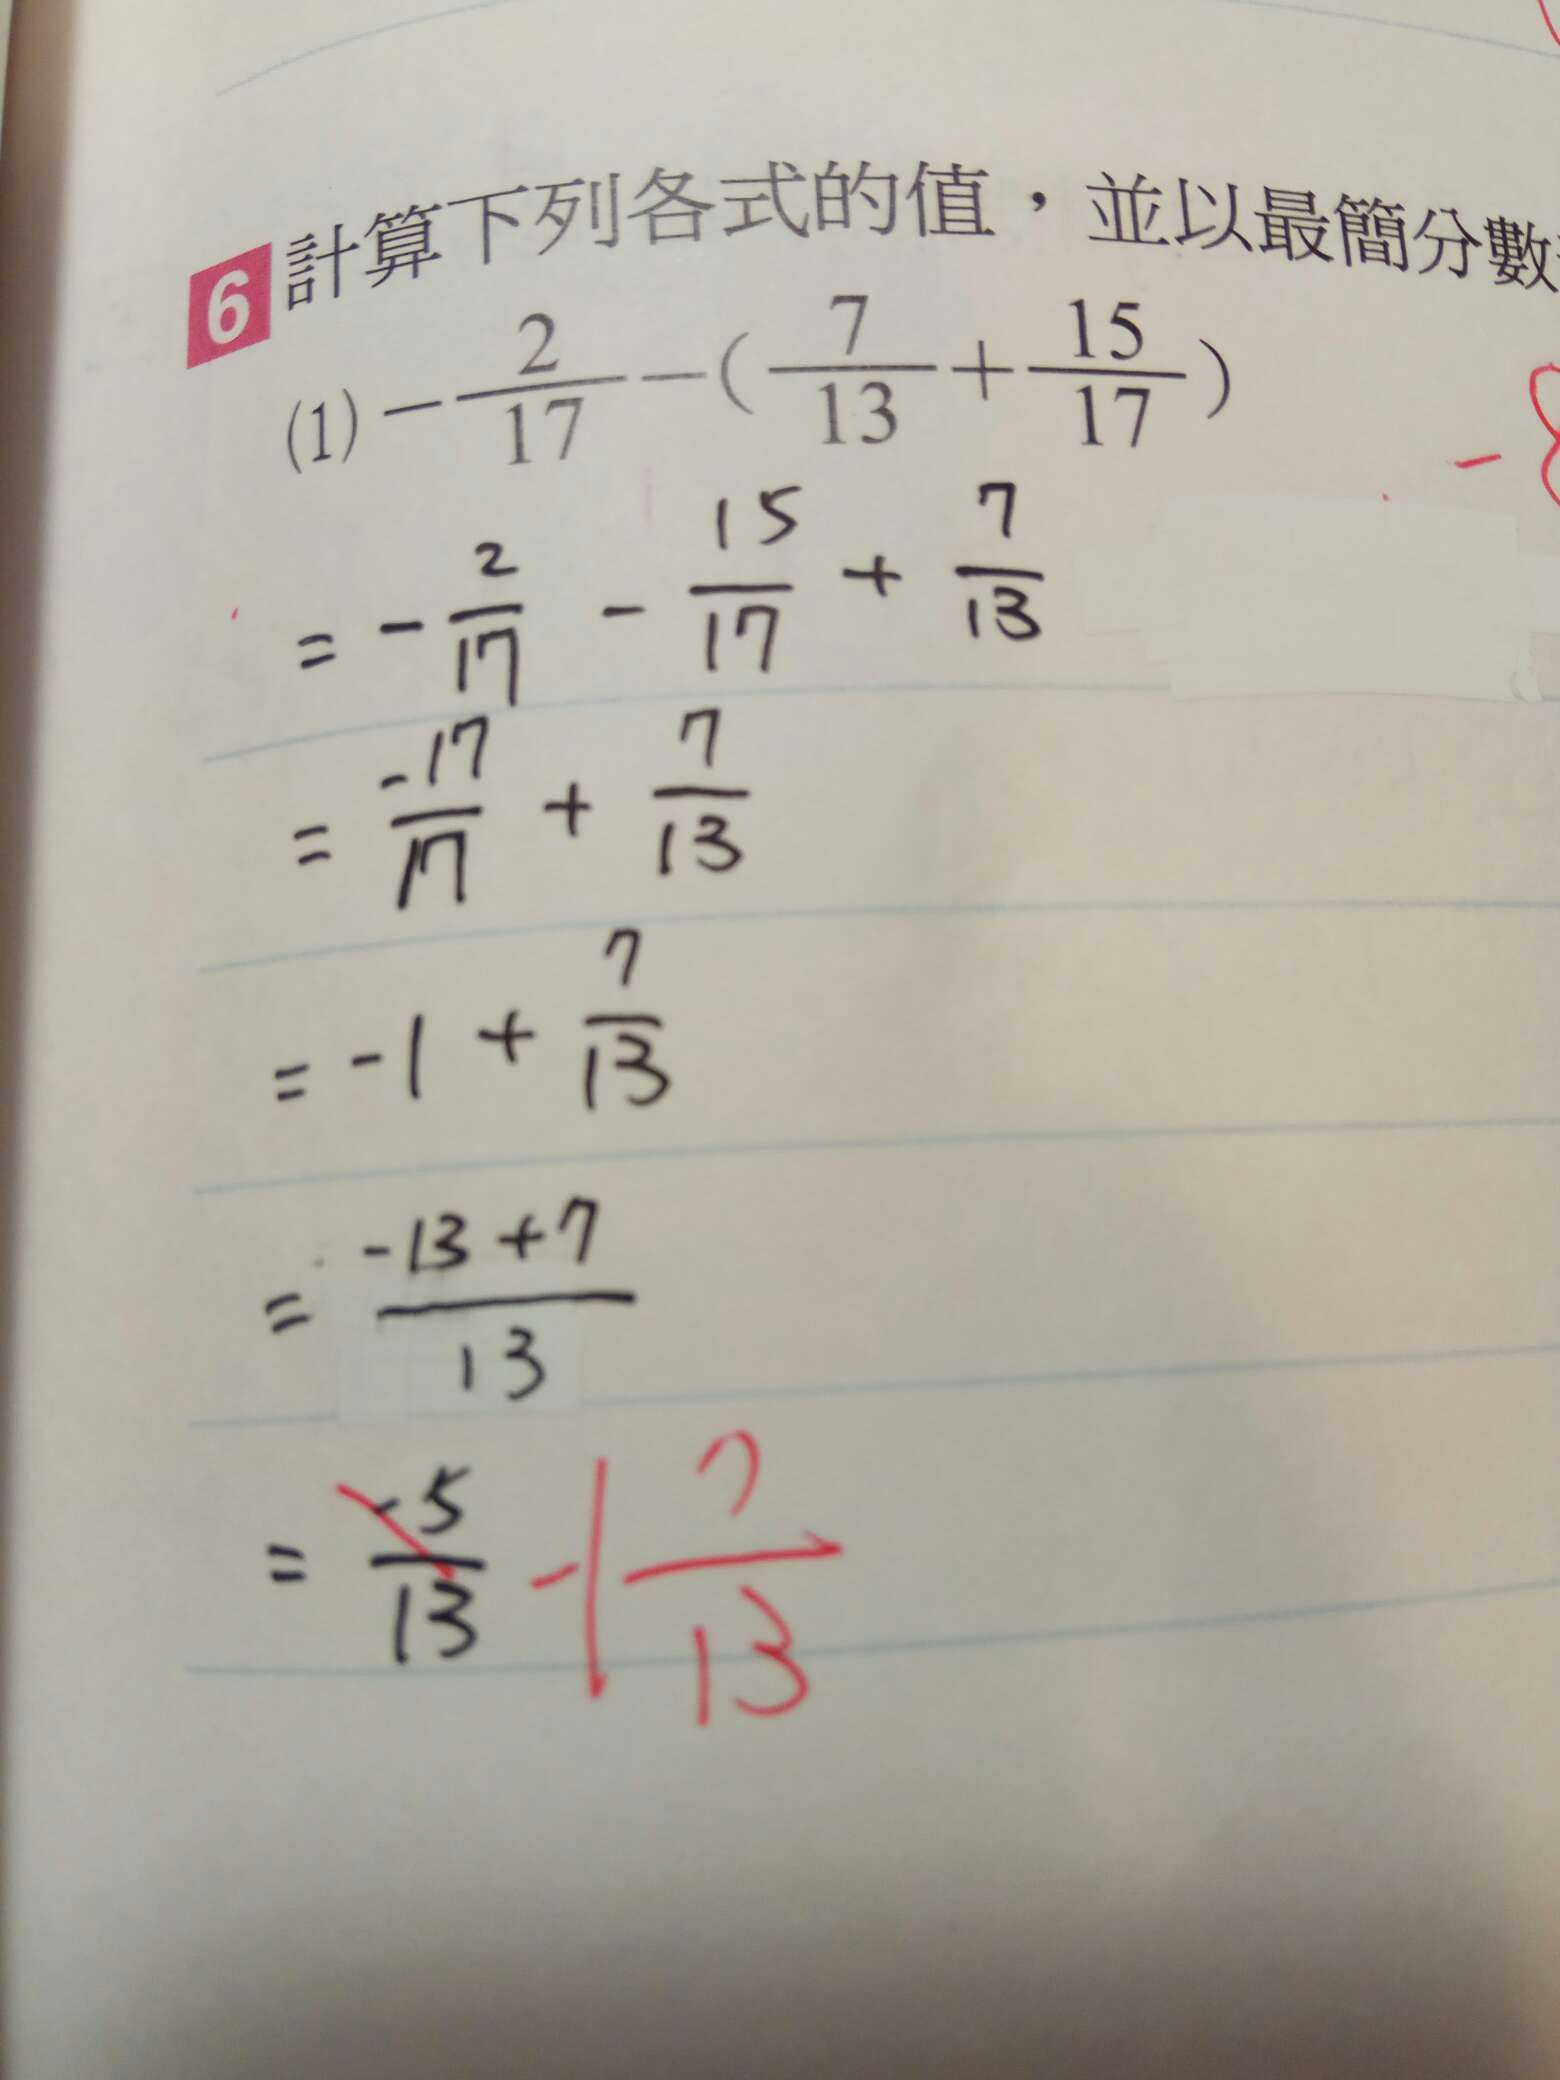 6 計算下列各式的值，並以最簡分數
(1) -2/17 - ( 7/13 + 15/17 )
= - 2/17 - 15/17 + 7/13
= -17/17 + 7/13
= -1 + 7/13
= -13+7/13
= -5/13 -1 7/13
-8